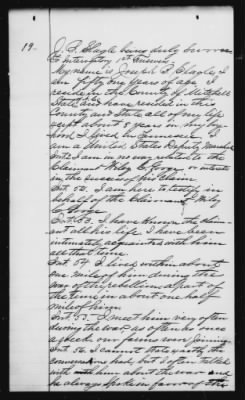 19-
J. S. Slagle being duly sworn
to Interrogatory 1st Answers
My name is Joseph S. Slagle I
am fifty one years of age. I
reside in the County of Mitchell
State and have resided in this
County and State all of my life
except about 8 years in my
hood I lived in Tennessee. I
am a United States Deputy Marshal
Int. 2 I am in no way related to the
Claimant or interested
in the success of his Claim
Int. 52. I am here to testify in
behalf of the Claimant Wiley
Int. 53. I have known the claim-
ant all his life. I have been
intimately acquainted with him
all that time.
Int. 54 I lived within about
one mile of him during the
war of the rebellion a part of
the time in about one half
mile of him
Int. 55. I meet him very often
during the war, as often as once
a week our farms were joining
Int. 56. I cannot state exactly the
conversations had, but I often talked
with him about the war and
he always spoke in favor of the